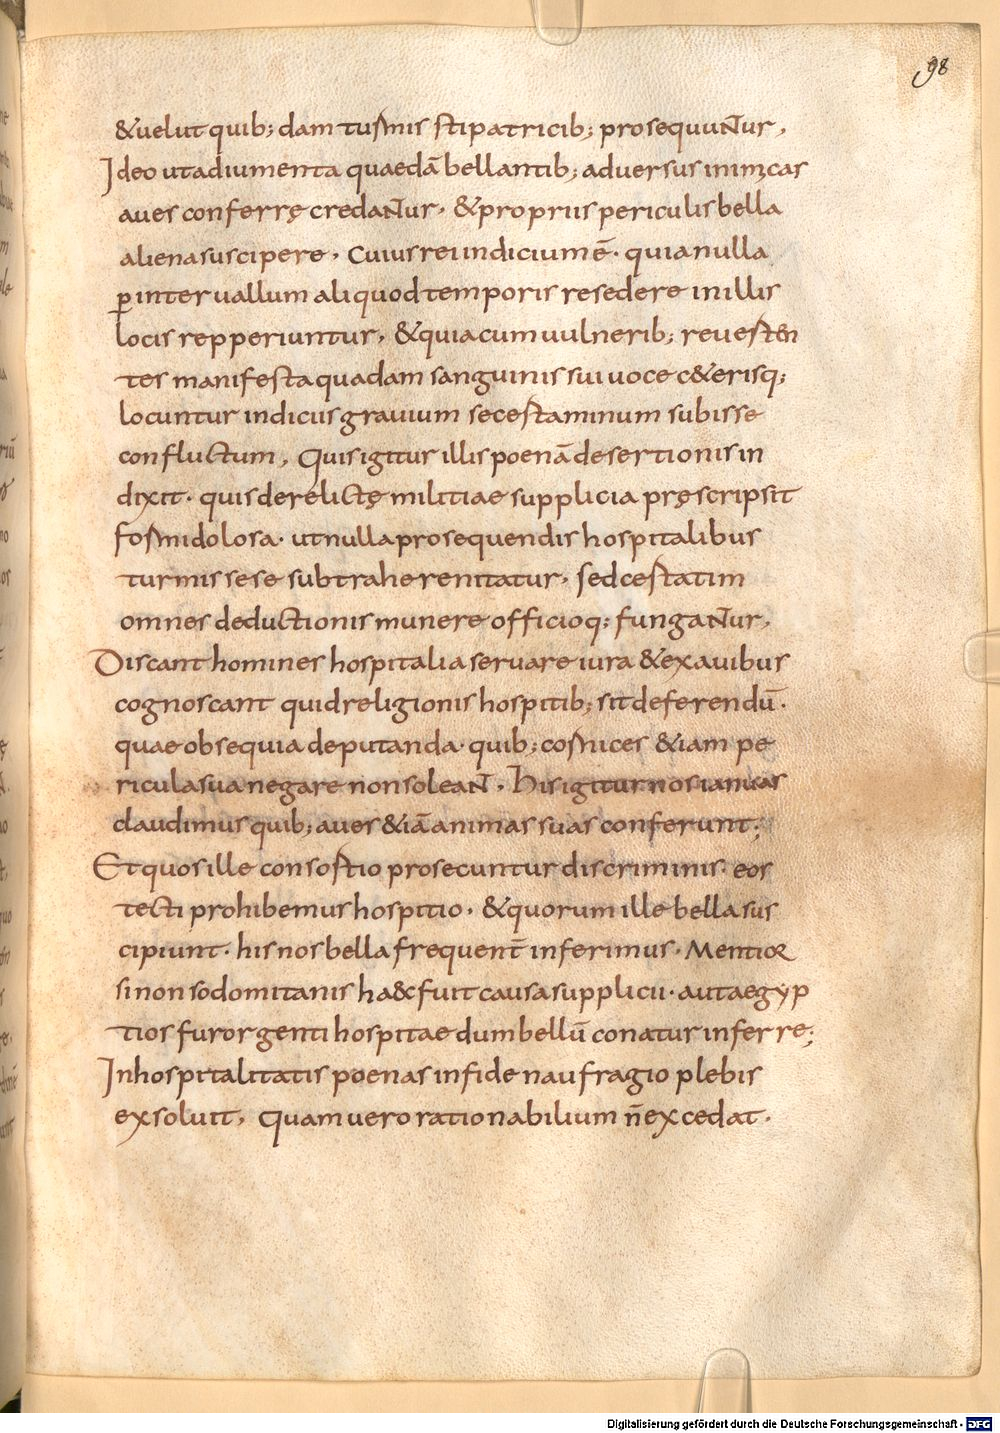 98
&uelut quib; dam turmis stipatricib; prosequuntur,
Ideo utadiumenta quaedā bellantib; aduersus inimicas
aues conferrę credantur, & propriis periculis bella
aliena suscipere, Cuius rei indicium ē. quia nulla
ꝑ interuallum aliquod temporis resedere in illis
locis repperiuntur, & quia cum uulnerib; reuerten
tes manifesta quadam sanguinis sui uoce c&erisq;
locuntur indiciis grauium se certaminum subisse
conflictum, Quis igitur illis poenā desertionis in
dixit. quis derelictę militiae supplicia pręscripsit
formidolosa. ut nulla prosequendis hospitalibus
turmis sese subtrahere nitatur, sed certatim
omnes deductionis munere officioq; fungantur,
Discant homines hospitalia seruare iura & ex auibus
cognoscant quid religionis hospitib; sit deferendū.
quae obsequia deputanda. quib; cornices &iam pe
ricula sua negare non soleant. His igitur nos ianuas
claudimus quib; aues &iā animas suas conferunt;
Et quos ille consortio prosecuntur discriminis. eos
tecti prohibemus hospitio. & quorum ille bella sus
cipiunt. his nos bella frequent̄ inferimus. Mentior
si non sodomitanis haec fuit causa supplicii. aut aegyp
tios furor genti hospitae dum bellū conatur inferre;
Inhospitalitatis poenas infide naufragio plebis
exsoluit, Quam uero rationabilium n̄ excedat.
Digitalisierung gefördert durch die Deutsche Forschungsgemeinschaft - DFG